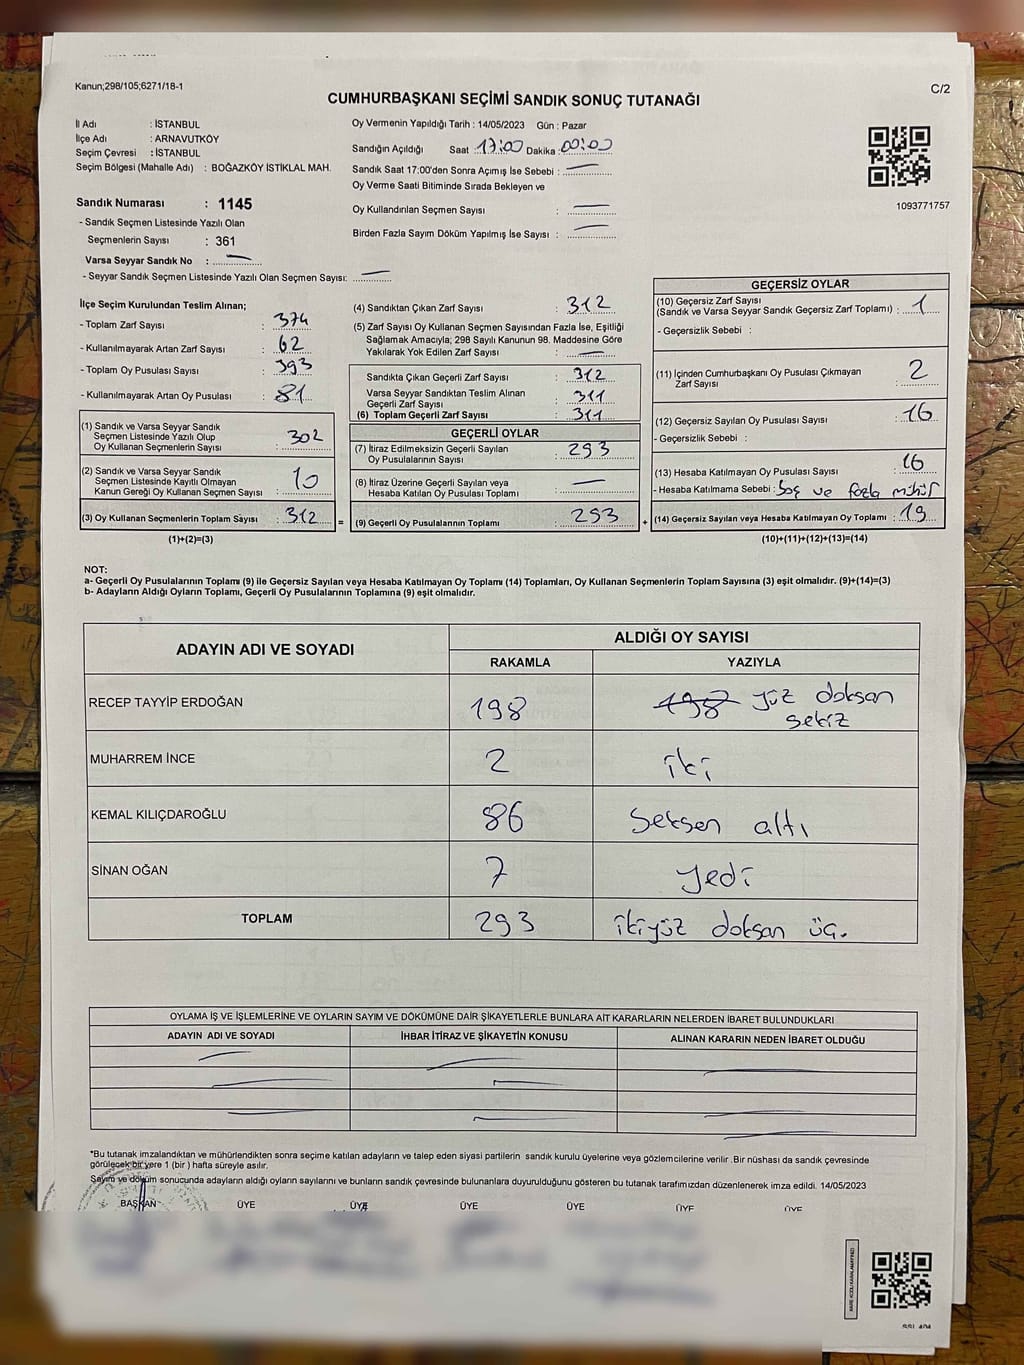 Kanun;298/105;6271/18-1
C/2
CUMHURBAŞKANI SEÇİMİ SANDIK SONUÇ TUTANAĞI
İl Adı : İSTANBUL
İlçe Adı : ARNAVUTKÖY
Seçim Çevresi : İSTANBUL
Seçim Bölgesi (Mahalle Adı) : BOĞAZKÖY İSTİKLAL MAH.
Sandık Numarası : 1145
- Sandık Seçmen Listesinde Yazılı Olan
Seçmenlerin Sayısı : 361
Varsa Seyyar Sandık No :
- Seyyar Sandık Seçmen Listesinde Yazılı Olan Seçmen Sayısı:
Oy Vermenin Yapıldığı Tarih : 14/05/2023 Gün : Pazar
Sandığın Açıldığı Saat : 17:00 Dakika : 00:00
Sandık Saat 17:00'den Sonra Açımış İse Sebebi :
Oy Verme Saati Bitiminde Sırada Bekleyen ve
Oy Kullandırılan Seçmen Sayısı :
Birden Fazla Sayım Döküm Yapılmış İse Sayısı :
1093771757
İlçe Seçim Kurulundan Teslim Alınan;
- Toplam Zarf Sayısı : 374
- Kullanılmayarak Artan Zarf Sayısı : 62
- Toplam Oy Pusulası Sayısı : 393
- Kullanılmayarak Artan Oy Pusulası : 81
(1) Sandık ve Varsa Seyyar Sandık
Seçmen Listesinde Yazılı Olup
Oy Kullanan Seçmenlerin Sayısı : 302
(2) Sandık ve Varsa Seyyar Sandık
Seçmen Listesinde Kayıtlı Olmayan
Kanun Gereği Oy Kullanan Seçmen Sayısı : 10
(3) Oy Kullanan Seçmenlerin Toplam Sayısı : 312 =
(1)+(2)=(3)
(4) Sandıktan Çıkan Zarf Sayısı : 312
(5) Zarf Sayısı Oy Kullanan Seçmen Sayısından Fazla İse, Eşitliği
Sağlamak Amacıyla; 298 Sayılı Kanunun 98. Maddesine Göre
Yakılarak Yok Edilen Zarf Sayısı :
Sandıkta Çıkan Geçerli Zarf Sayısı : 312
Varsa Seyyar Sandıktan Teslim Alınan
Geçerli Zarf Sayısı : 311
(6) Toplam Geçerli Zarf Sayısı : 311
GEÇERLİ OYLAR
(7) İtiraz Edilmeksizin Geçerli Sayılan
Oy Pusulalarının Sayısı : 293
(8) İtiraz Üzerine Geçerli Sayılan veya
Hesaba Katılan Oy Pusulası Toplamı :
(9) Geçerli Oy Pusulalarının Toplamı : 293 +
GEÇERSİZ OYLAR
(10) Geçersiz Zarf Sayısı
(Sandık ve Varsa Seyyar Sandık Geçersiz Zarf Toplamı) : 1
- Geçersizlik Sebebi :
(11) İçinden Cumhurbaşkanı Oy Pusulası Çıkmayan
Zarf Sayısı : 2
(12) Geçersiz Sayılan Oy Pusulası Sayısı : 16
- Geçersizlik Sebebi :
(13) Hesaba Katılmayan Oy Pusulası Sayısı : 16
- Hesaba Katılmama Sebebi : boş ve fazla mühür
(14) Geçersiz Sayılan veya Hesaba Katılmayan Oy Toplamı : 19
(10)+(11)+(12)+(13)=(14)
NOT:
a- Geçerli Oy Pusulalarının Toplamı (9) ile Geçersiz Sayılan veya Hesaba Katılmayan Oy Toplamı (14) Toplamları, Oy Kullanan Seçmenlerin Toplam Sayısına (3) eşit olmalıdır. (9)+(14)=(3)
b- Adayların Aldığı Oyların Toplamı, Geçerli Oy Pusulalarının Toplamına (9) eşit olmalıdır.
ADAYIN ADI VE SOYADI
ALDIĞI OY SAYISI
RAKAMLA YAZIYLA
RECEP TAYYİP ERDOĞAN 198 198 yüz doksan
sekiz
MUHARREM İNCE 2 iki
KEMAL KILIÇDAROĞLU 86 seksen altı
SİNAN OĞAN 7 yedi
TOPLAM 293 ikiyüz doksan üç.
OYLAMA İŞ VE İŞLEMLERİNE VE OYLARIN SAYIM VE DÖKÜMÜNE DAİR ŞİKAYETLERLE BUNLARA AİT KARARLARIN NELERDEN İBARET BULUNDUKLARI
ADAYIN ADI VE SOYADI İHBAR İTİRAZ VE ŞİKAYETİN KONUSU ALINAN KARARIN NEDEN İBARET OLDUĞU
*Bu tutanak imzalandıktan ve mühürlendikten sonra seçime katılan adayların ve talep eden siyasi partilerin sandık kurulu üyelerine veya gözlemcilerine verilir .Bir nüshası da sandık çevresinde
görülecek bir yere 1 (bir ) hafta süreyle asılır.
Sayım ve döküm sonucunda adayların aldığı oyların sayılarını ve bunların sandık çevresinde bulunanlara duyurulduğunu gösteren bu tutanak tarafımızdan düzenlenerek imza edildi. 14/05/2023
BAŞKAN ÜYE ÜYE ÜYE ÜYE ÜYE ÜYE